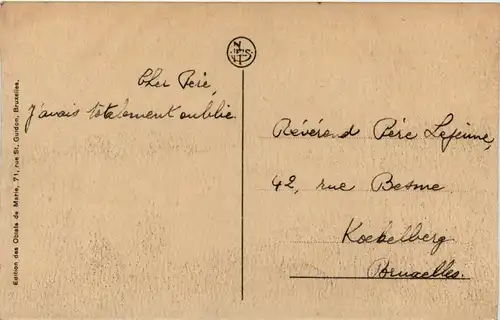 Edition des Oblats de Marie, 71, rue St. Guidon, Bruxelles.
Cher Père,
J'avais totalement oublié.
Révérend Père Lejeune,
42, rue Besme
Koekelberg
Bruxelles.